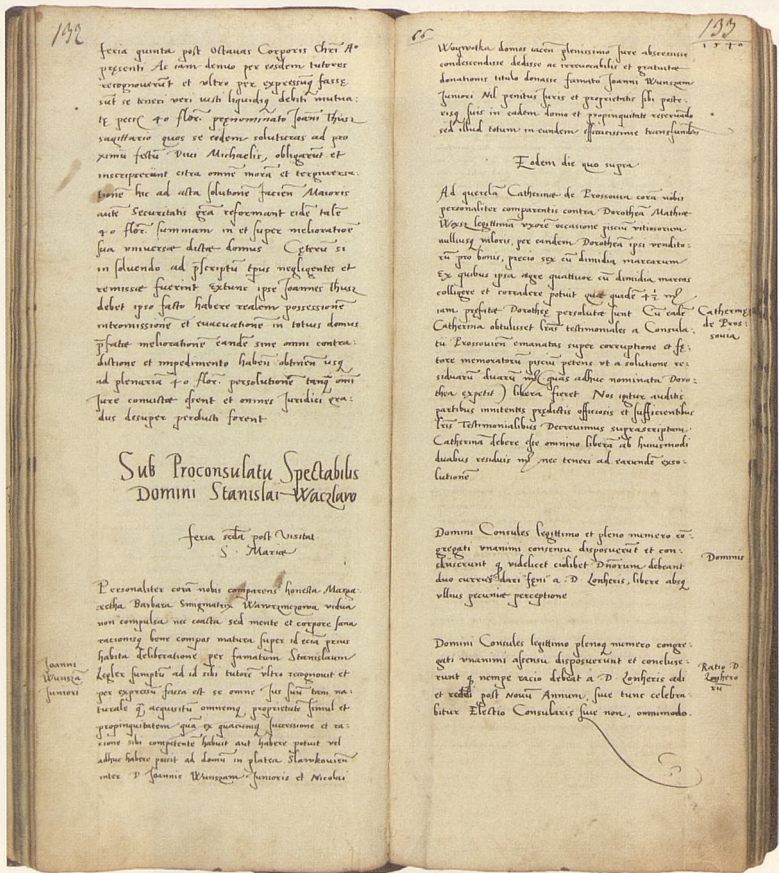 132
feria quinta post Octavas Corporis Chri Aº
presenti Ac iam denuo per eosdem tutores
recognoverūt et ultro per expressūq fasse
sūt se teneri veri iusti liquidiq debiti mutua:
te 40 flor: prenominato Joāni Thusz
sagittario quos se eidem soluturas ad pro
ximū festū Divi Michaelis, obligarūt et
inscripserunt citra omnē morā et tergiversa:
tionē hic ad acta solutionē faciēn Maioris
autē Securitatis grā reformant eidē talē
40 flor: summam in et super melioratiōe
sua universæ dictæ domus Ceterū si
in solvendo ad pscriptū tpus negligentes et
remissæ fuerint Extunc ipse Joannes Thusz
debet ipso facto habere realem possessionē
intromissionē et evacuationē in totius domus
pfatæ melioratiōnē eandē sine omni contra:
dictione et impedimento habēn obtinēn usq
ad plenariā 40 flor: persolutionē tanq omī
Jure convictæ essent et omnes Juridici gra:
dus desuper perducti forent
Sub Proconsulatu Spectabilis
Domini Stanislai Waczlawo
feria scda post Visitat
S. Mariæ
Personaliter corā nobis comparens honesta Marga
retha Barbara Smigmatrix Wawrzinczowa vidua
non compulsa nec coacta sed mente et corpore sana
racionisq bene compas matura super id etiā prius
habita deliberatione per famatum Stanislaum
Legler sumptū ad id sibi tutorē ultro recognovit et
per expressū fassa est se omne Jus suū tam na:
turale q̄ acquisitū omnemq proprietatē simul et
propinquitatem quā ex quacunq Successione et ra:
tione sibi competentē habuit aut habere potuit vel
adhuc habere possit ad domū in platea Slawkovien
inter D Joannis Wunszam Junioris et Nicolai
Joanni
Wunszā
Juniori
66
133
1540
Woywotka domos iacen plenissimo Jure abscessisse
condescendisse dedisse ac irrevocabilis et gratuitæ
donationis titulo donasse famato Joanni Wunszam
Juniori Nil penitus Juris et proprietatis sibi poste:
risq suis in eadem domo et propinquitate reservādo
sed illud totum in eundem efficacissime transfundēn
Eodem die quo supra
Ad querelā Catherinæ de Brossovia corā nobis
personaliter comparentis contra Dorotheā Mathiæ
legittimā uxorē occasione pisciū vitiosorum
nulliusq valoris, per eandem Dorotheā ipsi vendito:
rū pro bonis, precio sex cū dimidia marcarum
Ex quibus ipsa ægre quattuor cū dimidia marcas
colligere et corradere potuit quæ quidē 4½ mr
iam prefatæ Dorotheæ persolutæ sunt Cū eadē
Catherina obtulisset lras testimoniales a Consula:
tu Brossovien emanatas super corruptione et fę:
tore memoratorū pisciū petens ut a solutione re:
siduarū duarū mr (quas adhuc nominata Doro:
thea expetit) libera fieret Nos igitur auditis
partibus innitentes predictis officiosis et sufficientibus
Lris Testimonialibus Decrevimus suprascriptam
Catherinā debere esse omnino liberā ab huiusmodi
duabus residuis mr nec teneri ad earundē exso:
lutionē
Catherinæ
de Bros:
sovia
Domini Consules legittimo et pleno numero cō:
gregati unanimi consensu disposuerūt et con:
cluserunt q videlicet cuilibet Dnorum debeant
duo currus dari feni a D Lonheris, libere absq
ullius pecuniæ perceptione
Dominis
Domini Consules legittimo plenoq numero congre:
gati unanimi assensu disposuerunt et concluse:
runt q nempe racio debeat a D Lonheris ædi
et reddi post Novū Annum, sive tunc celebra:
bitur Electio Consularis sive non, omnimodo.
Ratio D
Lonhero
rū